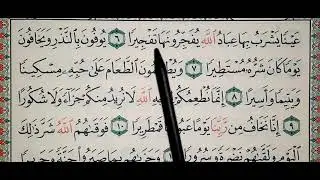 عَيْنًا يَشْرَبُ بِهَا عِبَادُ اللَّهِ يُفَجِّرُونَهَا تَفْجِيرًا ٦ يُوفُونَ بِالنَّذْرِ وَيَخَافُونَ
يَوْمًا كَانَ شَرُّهُ مُسْتَطِيرًا ٧ وَيُطْعِمُونَ الطَّعَامَ عَلَىٰ حُبِّهِ مِسْكِينًا
وَيَتِيمًا وَأَسِيرًا ٨ إِنَّمَا نُطْعِمُكُمْ اللَّهِ لَا نُرِيدُ مِنكُمْ جَزَاءً وَلَا شُكُورًا
٩ إِنَّا نَخَافُ مِن رَّبِّنَا يَوْمًا عَبُوسًا قَمْطَرِيرًا ١٠ فَوَقَىٰهُمُ اللَّهُ شَرَّ ذَٰلِكَ
الْيَوْمِ وَلَقَّىٰهُمْ نَضْرَةً وَسُرُورًا وَجَزَىٰهُم بِمَا صَبَرُوا جَنَّةً وَحَرِيرًا